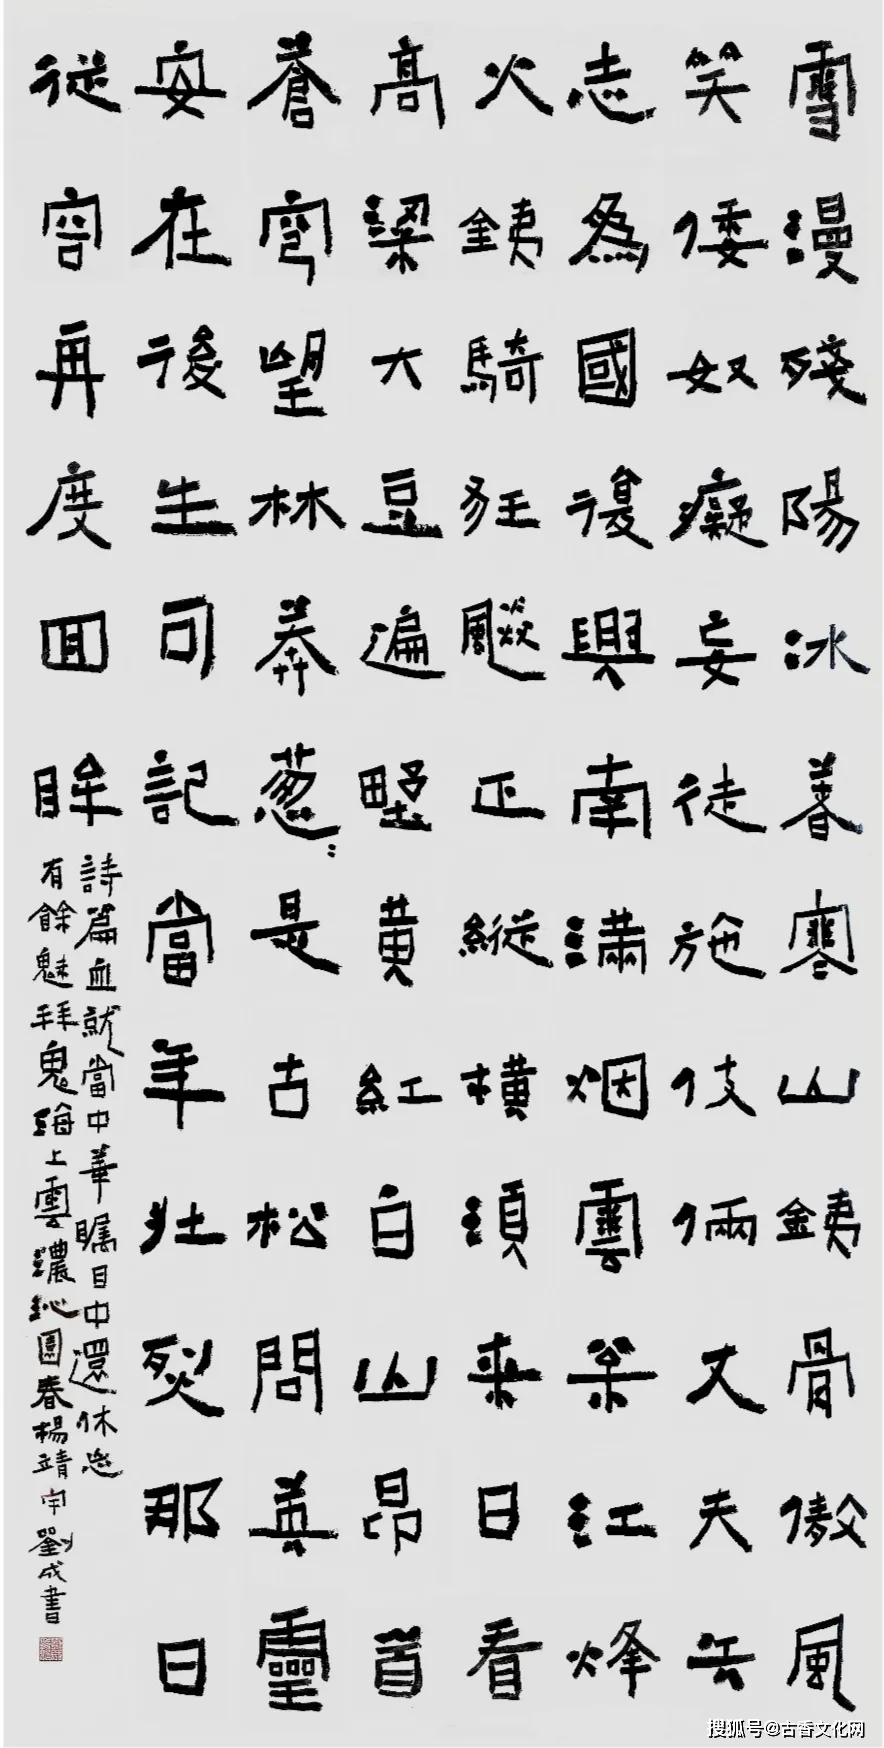 雪漫殘陽冰暮寒山銕骨傲風
笑倭奴癡妄徒施伎倆丈夫矢
志為國復興南滿烟雲江烽
火銕騎狂飈正縱橫須来日看
高粱大豆遍墅黃紅白山昂首
蒼穹望林莽葱：是古松問英靈
安在後生可記當年壯烈那日
従容再度回眸
詩篇血就當中華矚目中還休忘
有餘魅拜鬼海上雲濃沁園春楊靖宇劉成書
搜狐号@古香文化网